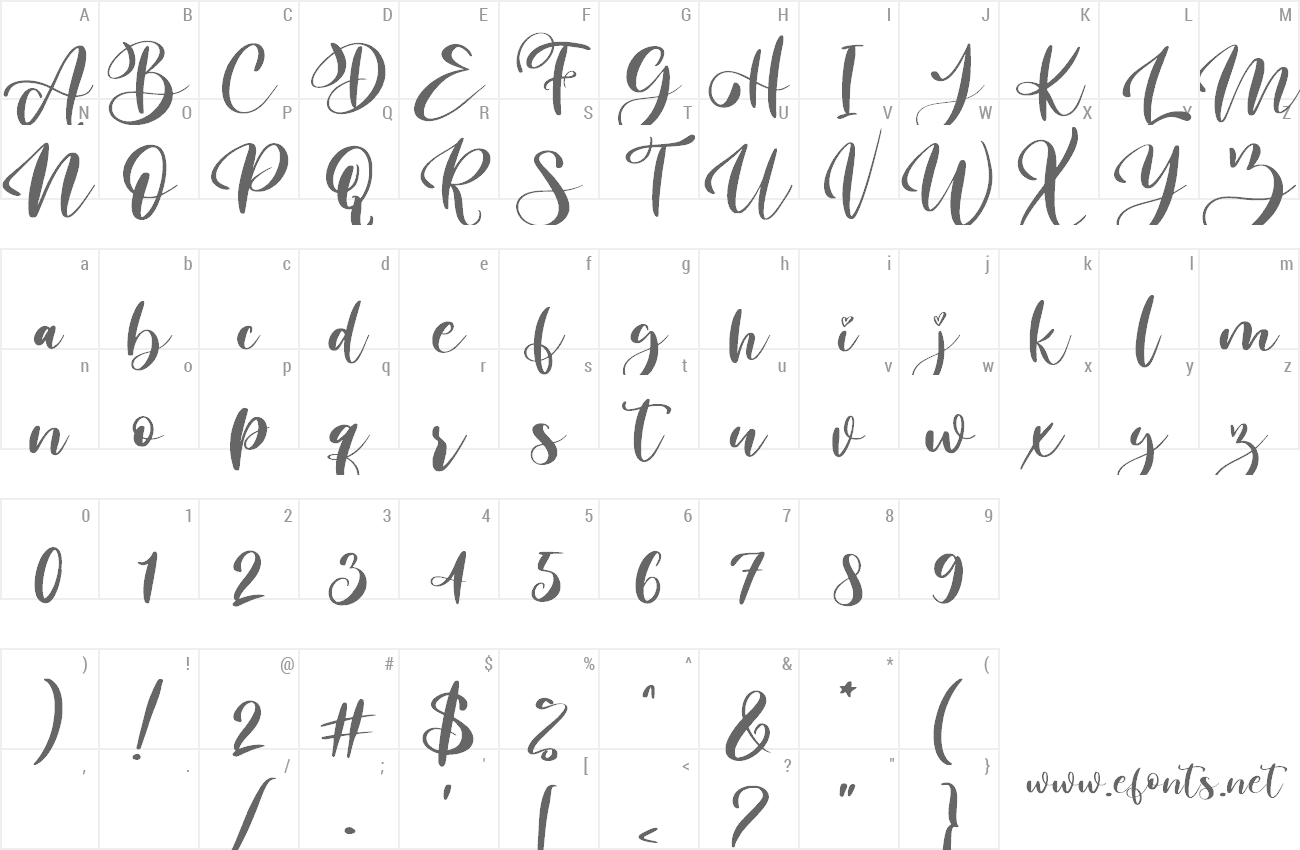 A B C D E F G H I J K L M
A B C D E F G H I J K L M
N O P Q R S T U V W X Y Z
N O P Q R S T U V W X Y Z
a b c d e f g h i j k l m
a b c d e f g h i j k l m
n o p q r s t u v w x y z
n o p q r s t u v w x y z
0 1 2 3 4 5 6 7 8 9
0 1 2 3 4 5 6 7 8 9
) ! @ # $ % ^ & * (
) ! 2 # $ % ^ & * (
, . / ; ' [ < ? " }
/ . ' [ < ? " }
www.efonts.net